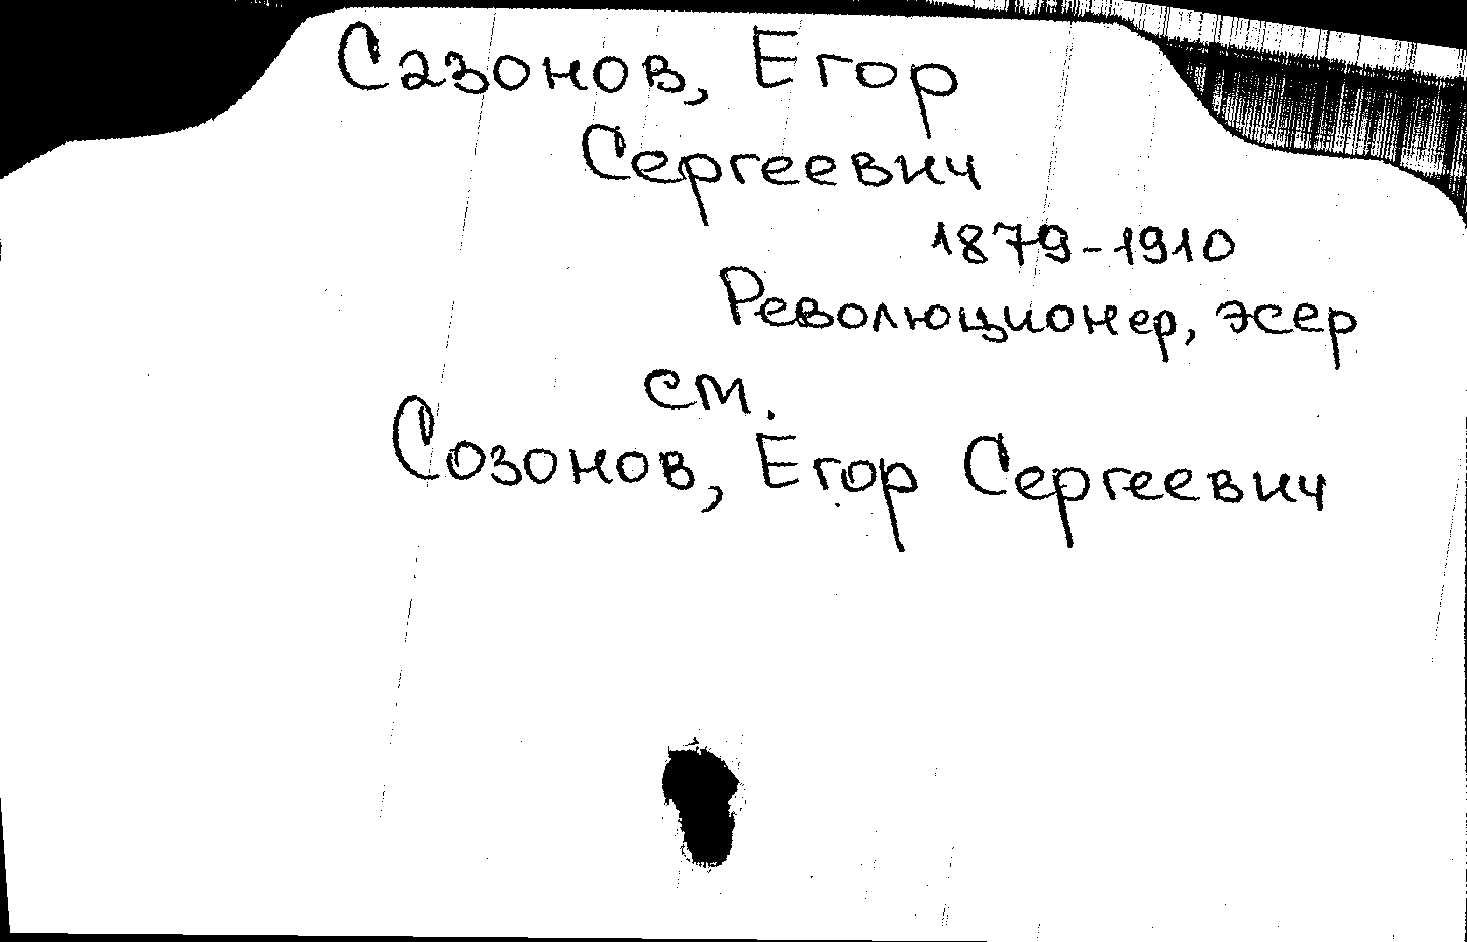 Сазонов, Егор
Сергеевич
1879-1910
Революционер, эсер
см.
Созонов, Егор Сергеевич